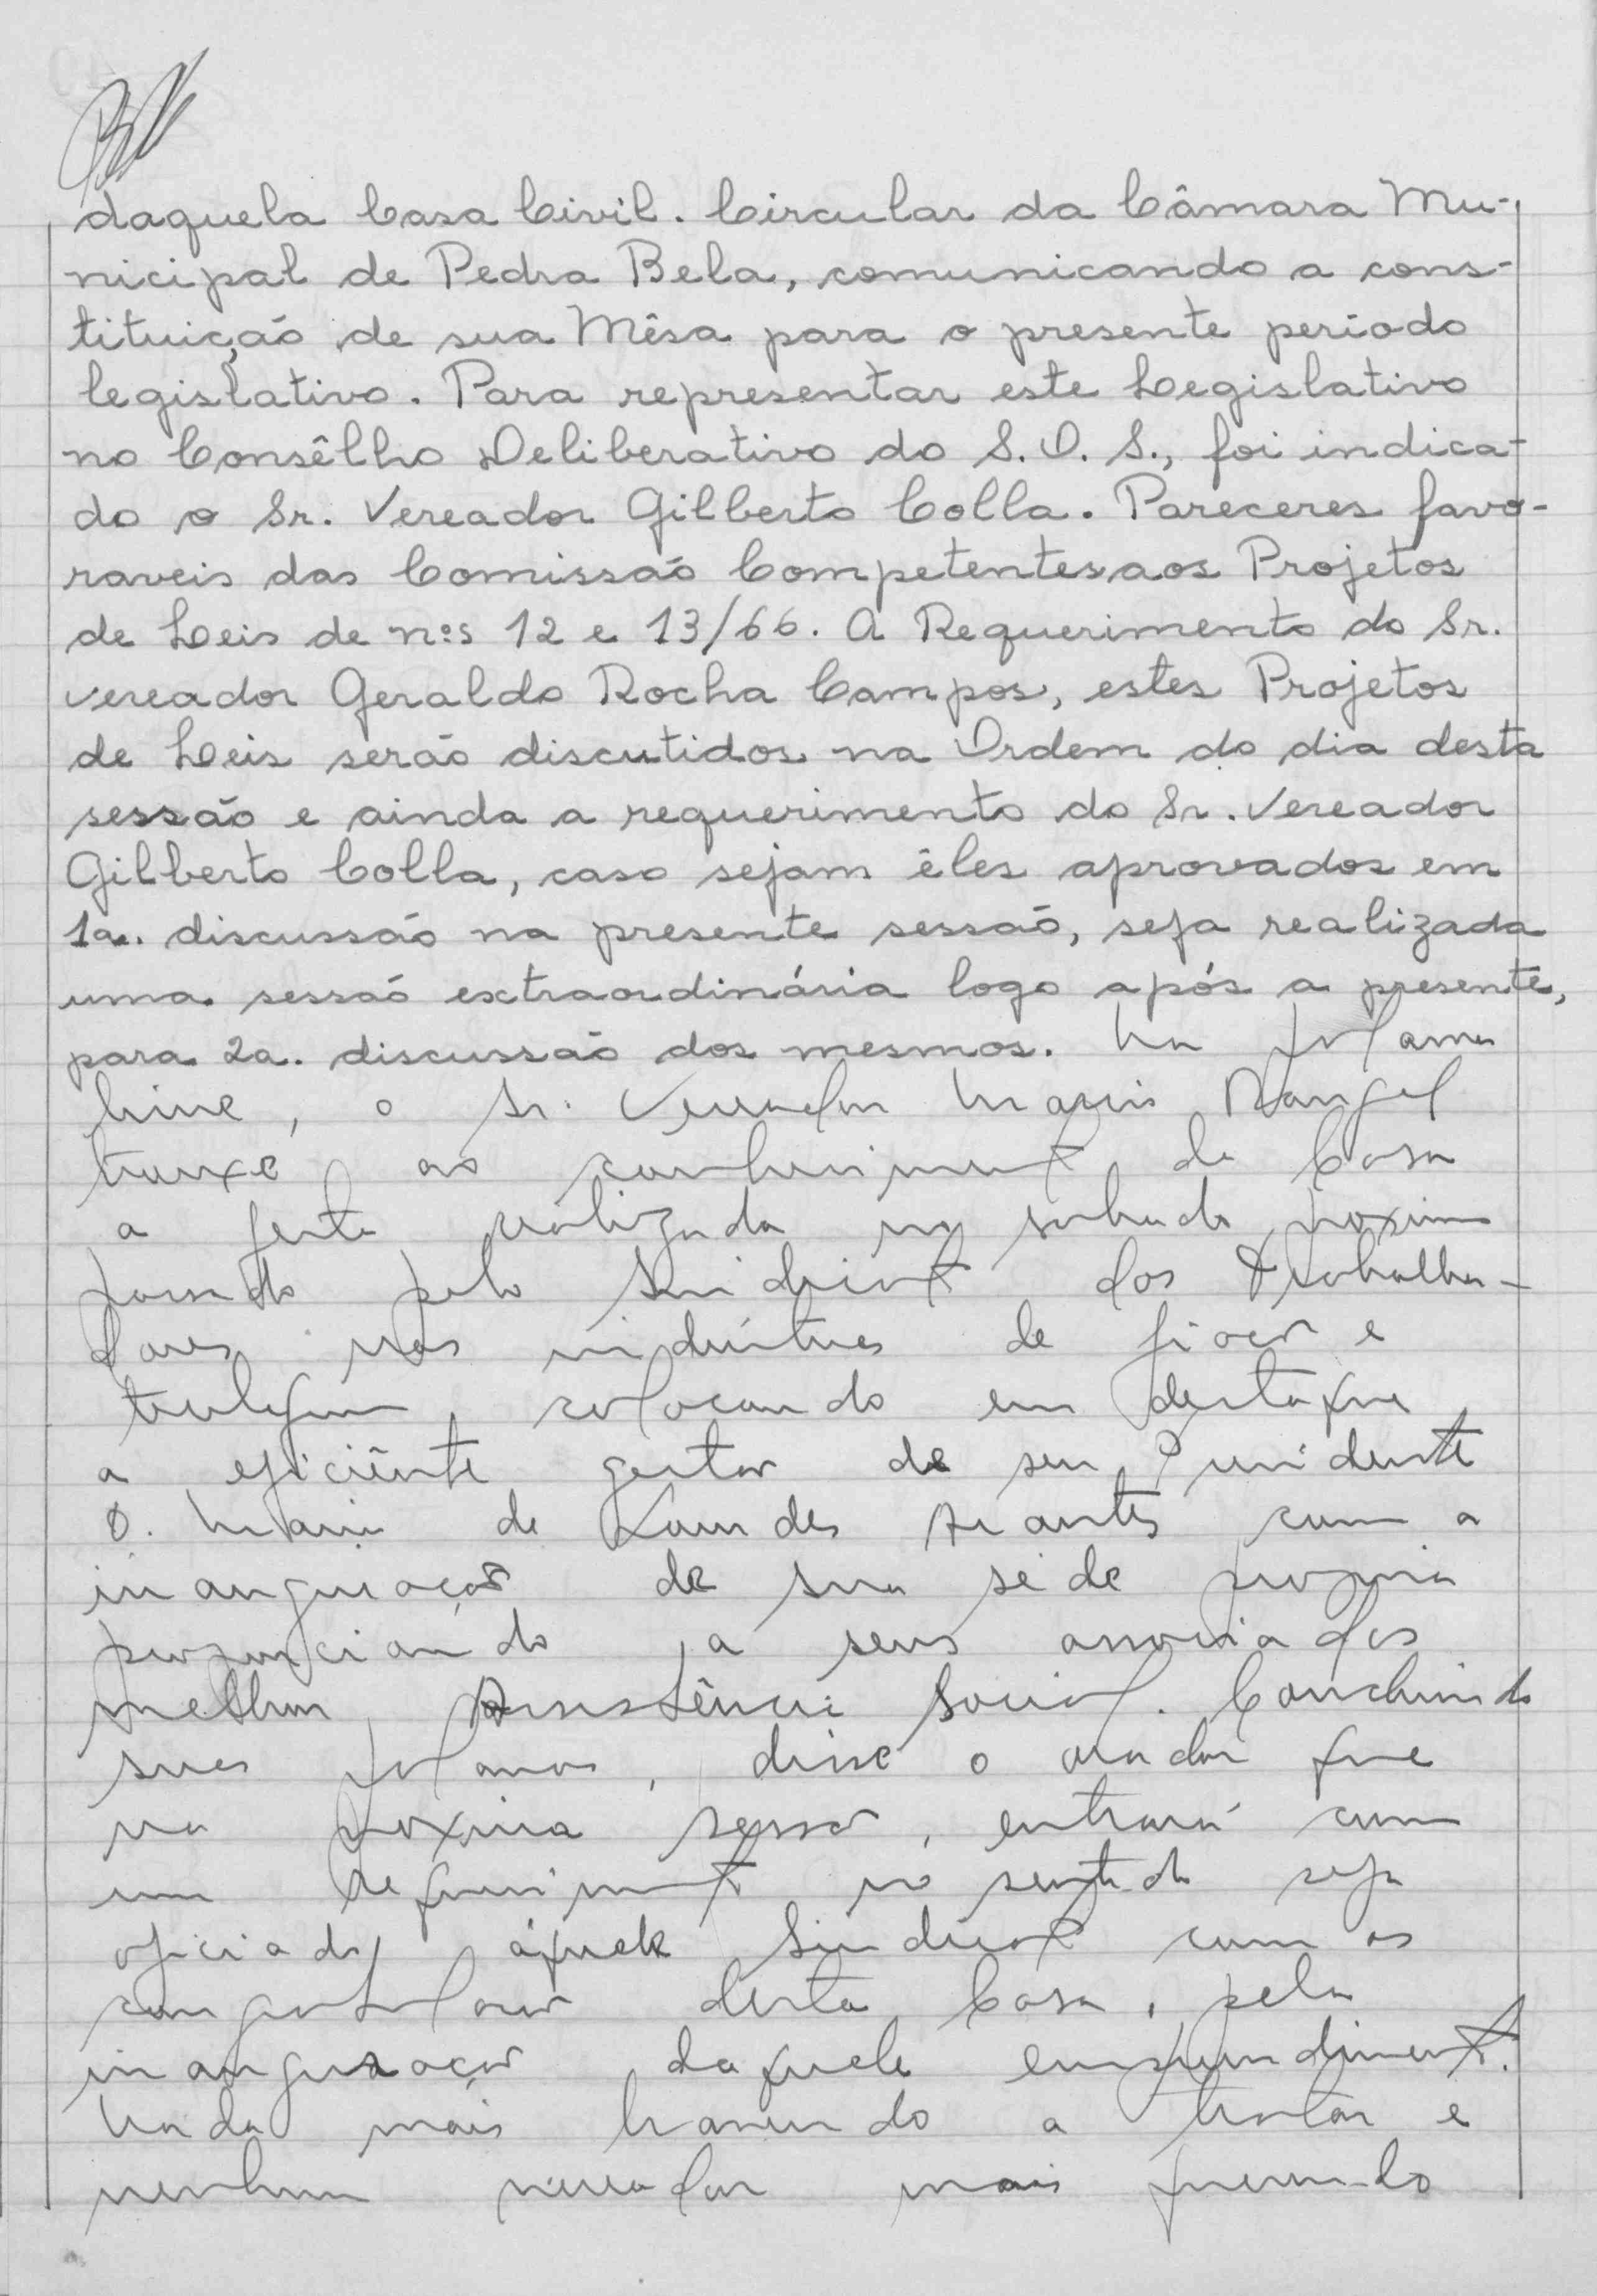 daquela Casa Civil. Circular da Câmara Mu-
nicipal de Pedra Bela, comunicando a cons-
tituição de sua Mêsa para o presente periodo
legislativo. Para representar este Legislativo
no Consêlho Deliberativo do S. O. S., foi indica-
do o Sr. Vereador Gilberto Colla. Pareceres favo-
raveis das Comissão Competentes aos Projetos
de Leis de nºs 12 e 13/66. A Requerimento do Sr.
vereador Geraldo Rocha Campos, estes Projetos
de Leis serão discutidos na Ordem do dia desta
sessão e ainda a requerimento do Sr. Vereador
Gilberto Colla, caso sejam êles aprovados em
1a. discussão na presente sessão, seja realizada
uma sessão extraordinária logo após a presente,
para 2a. discussão dos mesmos. Na palavra
livre, o Sr. Vereador Mario Rangel
trouxe ao conhecimento da Casa
a festa realizada no sabado proximo
passado pelo Sindicato dos Trabalha-
dores nas indústrias de fiação e
tecelagem, colocando em destaque
a eficiênte gestão de seu Presidente
D. Maria de Lourdes Arantes com a
inauguração de sua séde propria
proporcionando a seus associados
melhor Assistência Social. Concluindo
suas palavras, disse o orador que
na proxima sessão, entrará com
um requerimento no sentido seja
oficiado áquele Sindicato com as
congratulações desta Casa, pela
inauguração daquele empreendimento.
Nada mais havendo a tratar e
nenhum vereador mais querendo